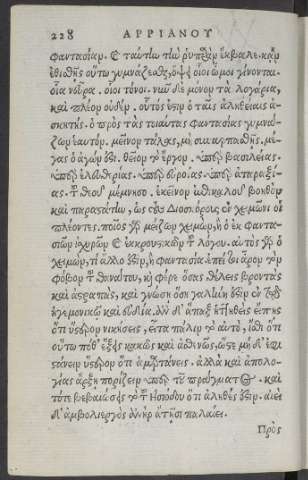 228 ΑΡΡΙΑΝΟΥ
φαντασίαν. καὶ ταύτην τὴν ῥυπαρὰν ἔκβαλε. κἂν
ἐθισθῇς οὕτω γυμνάζεσθαι, ὄψει οἷοι ὦμοι γίνονται.
οἷα νεῦρα. οἷοι τόνοι. νῦν δὲ μόνον τὰ λογάρια,
καὶ πλέον οὐδέν. οὗτός ἐστιν ὁ ταῖς ἀληθείαις ἀ-
σκητής. ὁ πρὸς τὰς τοιαύτας φαντασίας γυμνά-
ζων ἑαυτόν. μεῖνον τάλας, μὴ συναρπασθῇς. μέ-
γας ὁ ἀγών ἐστι. θεῖον τὸ ἔργον. ὑπὲρ βασιλείας.
ὑπὲρ ἐλευθερίας. ὑπὲρ εὐροίας. ὑπὲρ ἀταραξί-
ας. τοῦ θεοῦ μέμνησο. ἐκεῖνον ἐπικαλοῦ βοηθὸν
καὶ παραστάτην, ὡς τοὺς Διοσκόρους ἐν χειμῶνι οἱ
πλέοντες. ποῖος γὰρ μείζων χειμὼν, ἢ ὁ ἐκ φαντα-
σιῶν ἰσχυρῶν καὶ ἐκκρουστικῶν τοῦ λόγου. αὐτὸς γὰρ ὁ
χειμὼν, τί ἄλλο ἐστὶν, ἢ φαντασία; ἐπεί τοι ἆρον τὸν
φόβον τοῦ θανάτου, καὶ φέρε ὅσας θέλεις βροντὰς
καὶ ἀστραπὰς, καὶ γνώσῃ ὅση γαλήνη ἐστὶν ἐν τῷ
ἡγεμονικῷ καὶ εὐδία. ἂν δ' ἅπαξ ἡττηθεὶς εἴπῃς
ὅτι ὕστερον νικήσεις, εἶτα πάλιν τὸ αὐτὸ, ἴσθι ὅτι
οὕτω ποθ' ἕξεις κακῶς καὶ ἀσθενῶς, ὥστε μὴ δ' ἐφι-
στάνειν ὕστερον ὅτι ἁμαρτάνεις. ἀλλὰ καὶ ἀπολο-
γίας ἄρξῃ πορίζειν ὑπὲρ τοῦ πράγματος. καὶ
τότε βεβαιώσεις τὸ τοῦ Ἡσιόδου ὅτι ἀληθές ἐστιν. αἰεὶ
δ' ἀμβολιεργὸς ἀνὴρ ἄτῃσι παλαίει.
Πρὸς